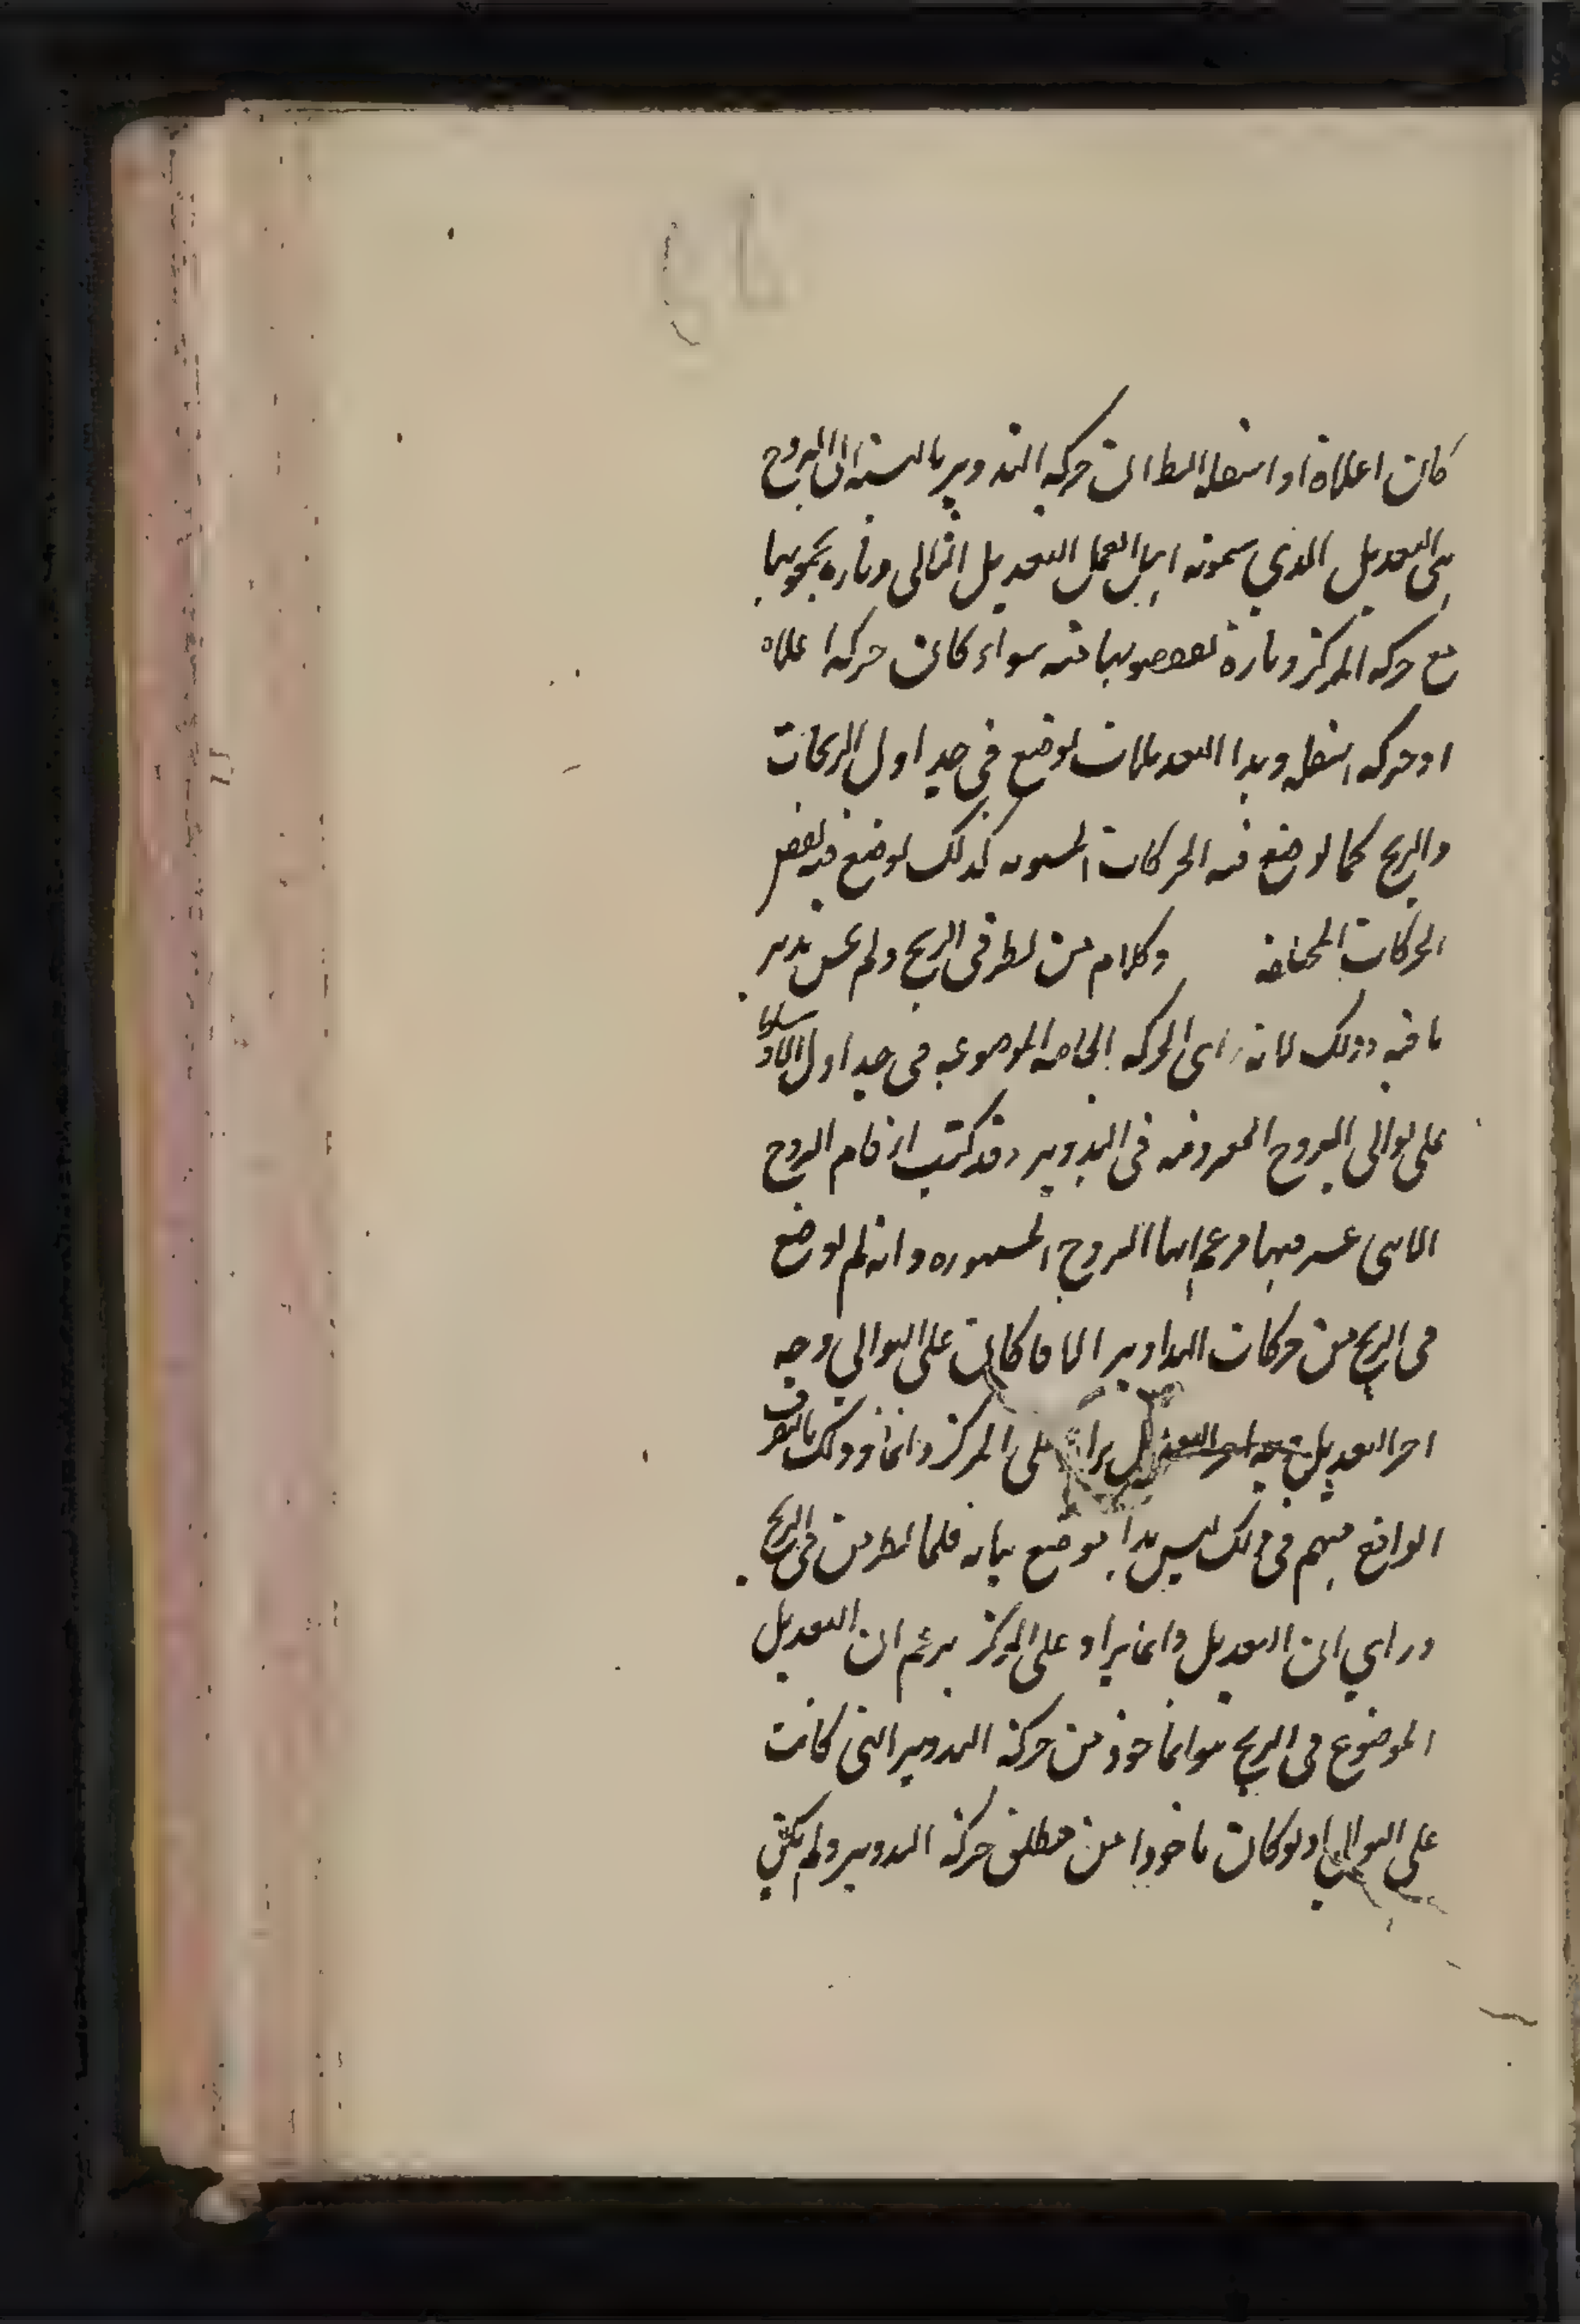 كان اعلاه او اسفله الطالن حركه التدوير بالنسبة الى البروج
هي التعديل الذي يسمونه اهل العمل التعديل الثاني وتارة يجمعونها
مع حركه المركز وتارة ينقصونها منه سواء كان حركه اعلاه
او حركه اسفله وهذا التعديلات توضع في جداول الزيجات
والزيج كما توضع فيه الحركات المستويه كذلك توضع فيه بعض
الحركات المختلفه وكلام من نظر في الزيج ولم يحسن تدبر
ما فيه وذلك لانه راى الحركه الخاصه الموضوعه في جداول
على توالي البروج المعروفه في التدوير وقد كتب ارقام البروج
الاثني عشر فيها فزعم انها البروج المشهوره وانه لم توضع
في الزيج من حركات التداوير الا ما كان على التوالي وجه
اخر التعديل يزاد على المركز دائما وذلك بالتصرف
الواقع منهم في ذلك ليس هذا موضع بيانه فلما نظر من في الزيج
وراي ان التعديل دائما يزاد على المركز يزعم ان التعديل
الموضوع في الزيج هو المأخوذ من حركة التدوير التي كانت
على التوالي ولو كان ماخوذا من مطلق حركة التدوير ولم يكن